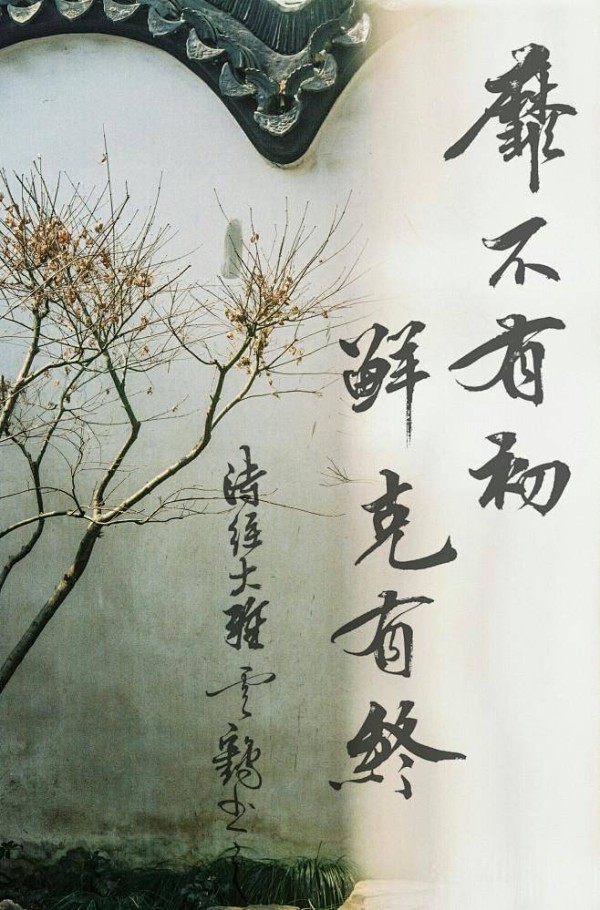 靡不有初
鲜克有终
诗经大雅 云鹤书之